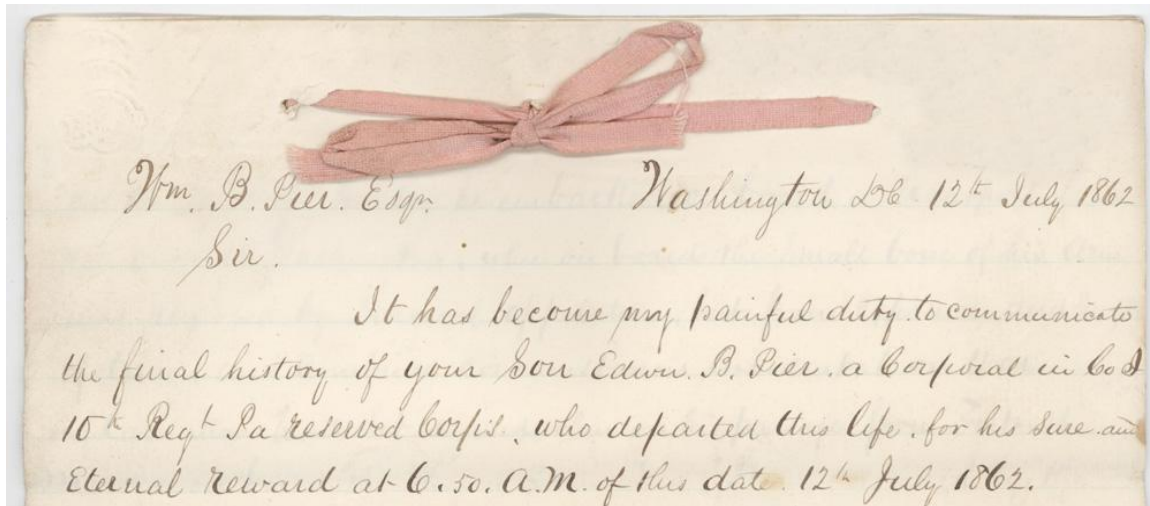 Wm. B. Pier. Esqr. Washington DC 12th July 1862
Sir.
It has become my painful duty to communicate
the final history of your Son Edwn. B. Pier. a Corporal in Co I
10th Regt Pa reserved Corps. who departed this life. for his sure and
Eternal reward at 6.50. A.M. of this date. 12th July 1862.